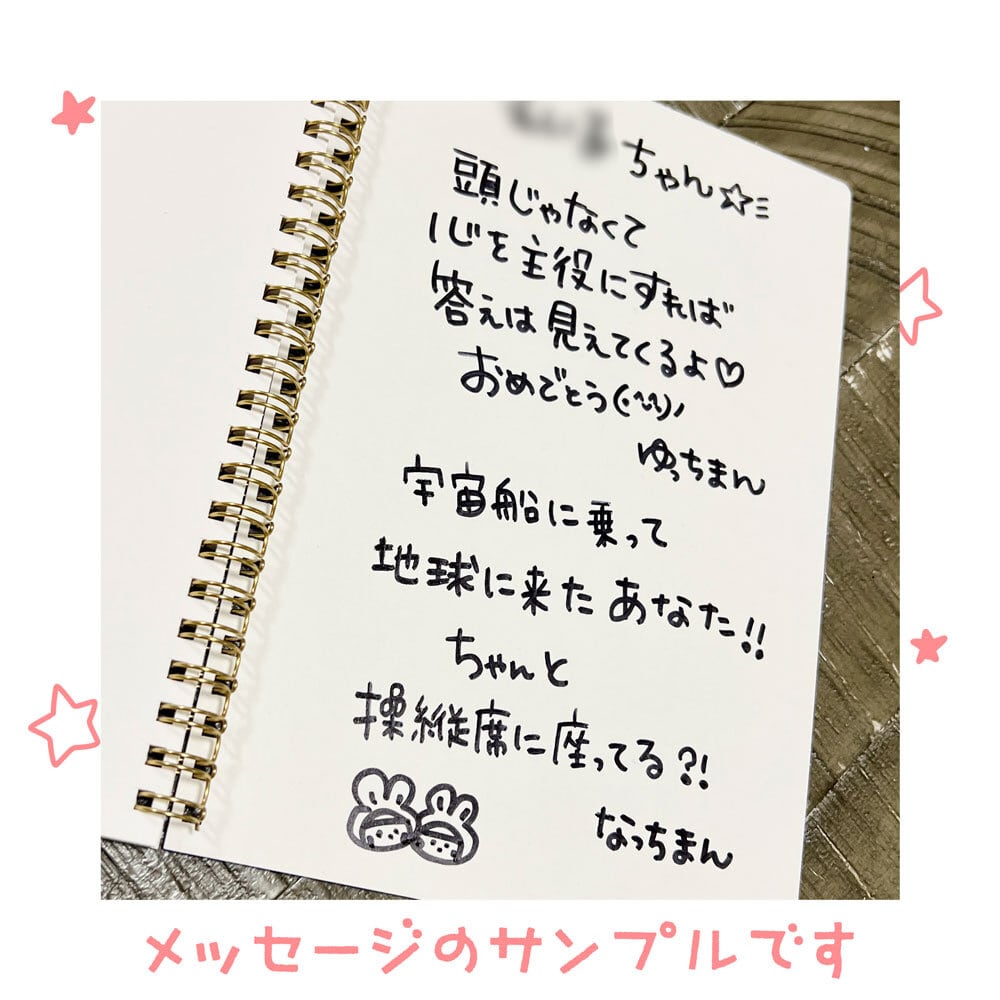 ちゃん☆ミ
頭じゃなくて
心を主役にすれば
答えは見えてくるよ♡
おめでとう(·~·)ノ
ゆっちまん
宇宙船に乗って
地球に来たあなた!!
ちゃんと
操縦席に座ってる?!
なっちまん
メッセージのサンプルです